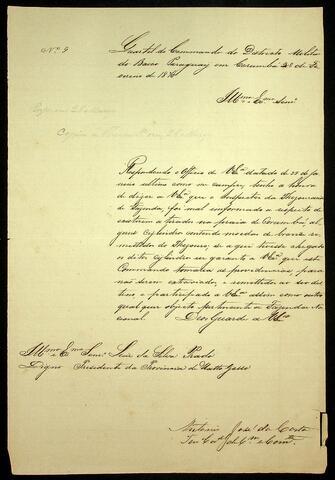 Nº 9
Quartel do Commando do Districto Militar
do Baixo Paraguay em Corumbá de Fe
vereiro de 1876
Illmo e Exmo Senr
Respondendo o Officio de V Exª datado de 28 de Ja
neiro ultimo como me cumpre, tenho a honra
de dizer a V Exª que o Inspector da Thesouraria
de Fazenda, foi mal informado a respeito de
existirem atirados na praia de Corumbá, al
guns cylindros contendo moedas de bronze re
mettidos do Thezouro, se aqui tivesse chegado
os ditos cylindros eu garanto a V Exª que este
Commando tomaria as providencias, para
não serem extraviados, e remettidos ao seu des
tino e participado a V Exª assim como outro
qual quer objecto pertencente a Fazenda Na
cional. Deos Guarde a V Exª
Illmo e Exmo Senr da Silva Prado
Digno Presidente da Provincia de Matto Grosso
Antonio José da Costa
Ten Cel